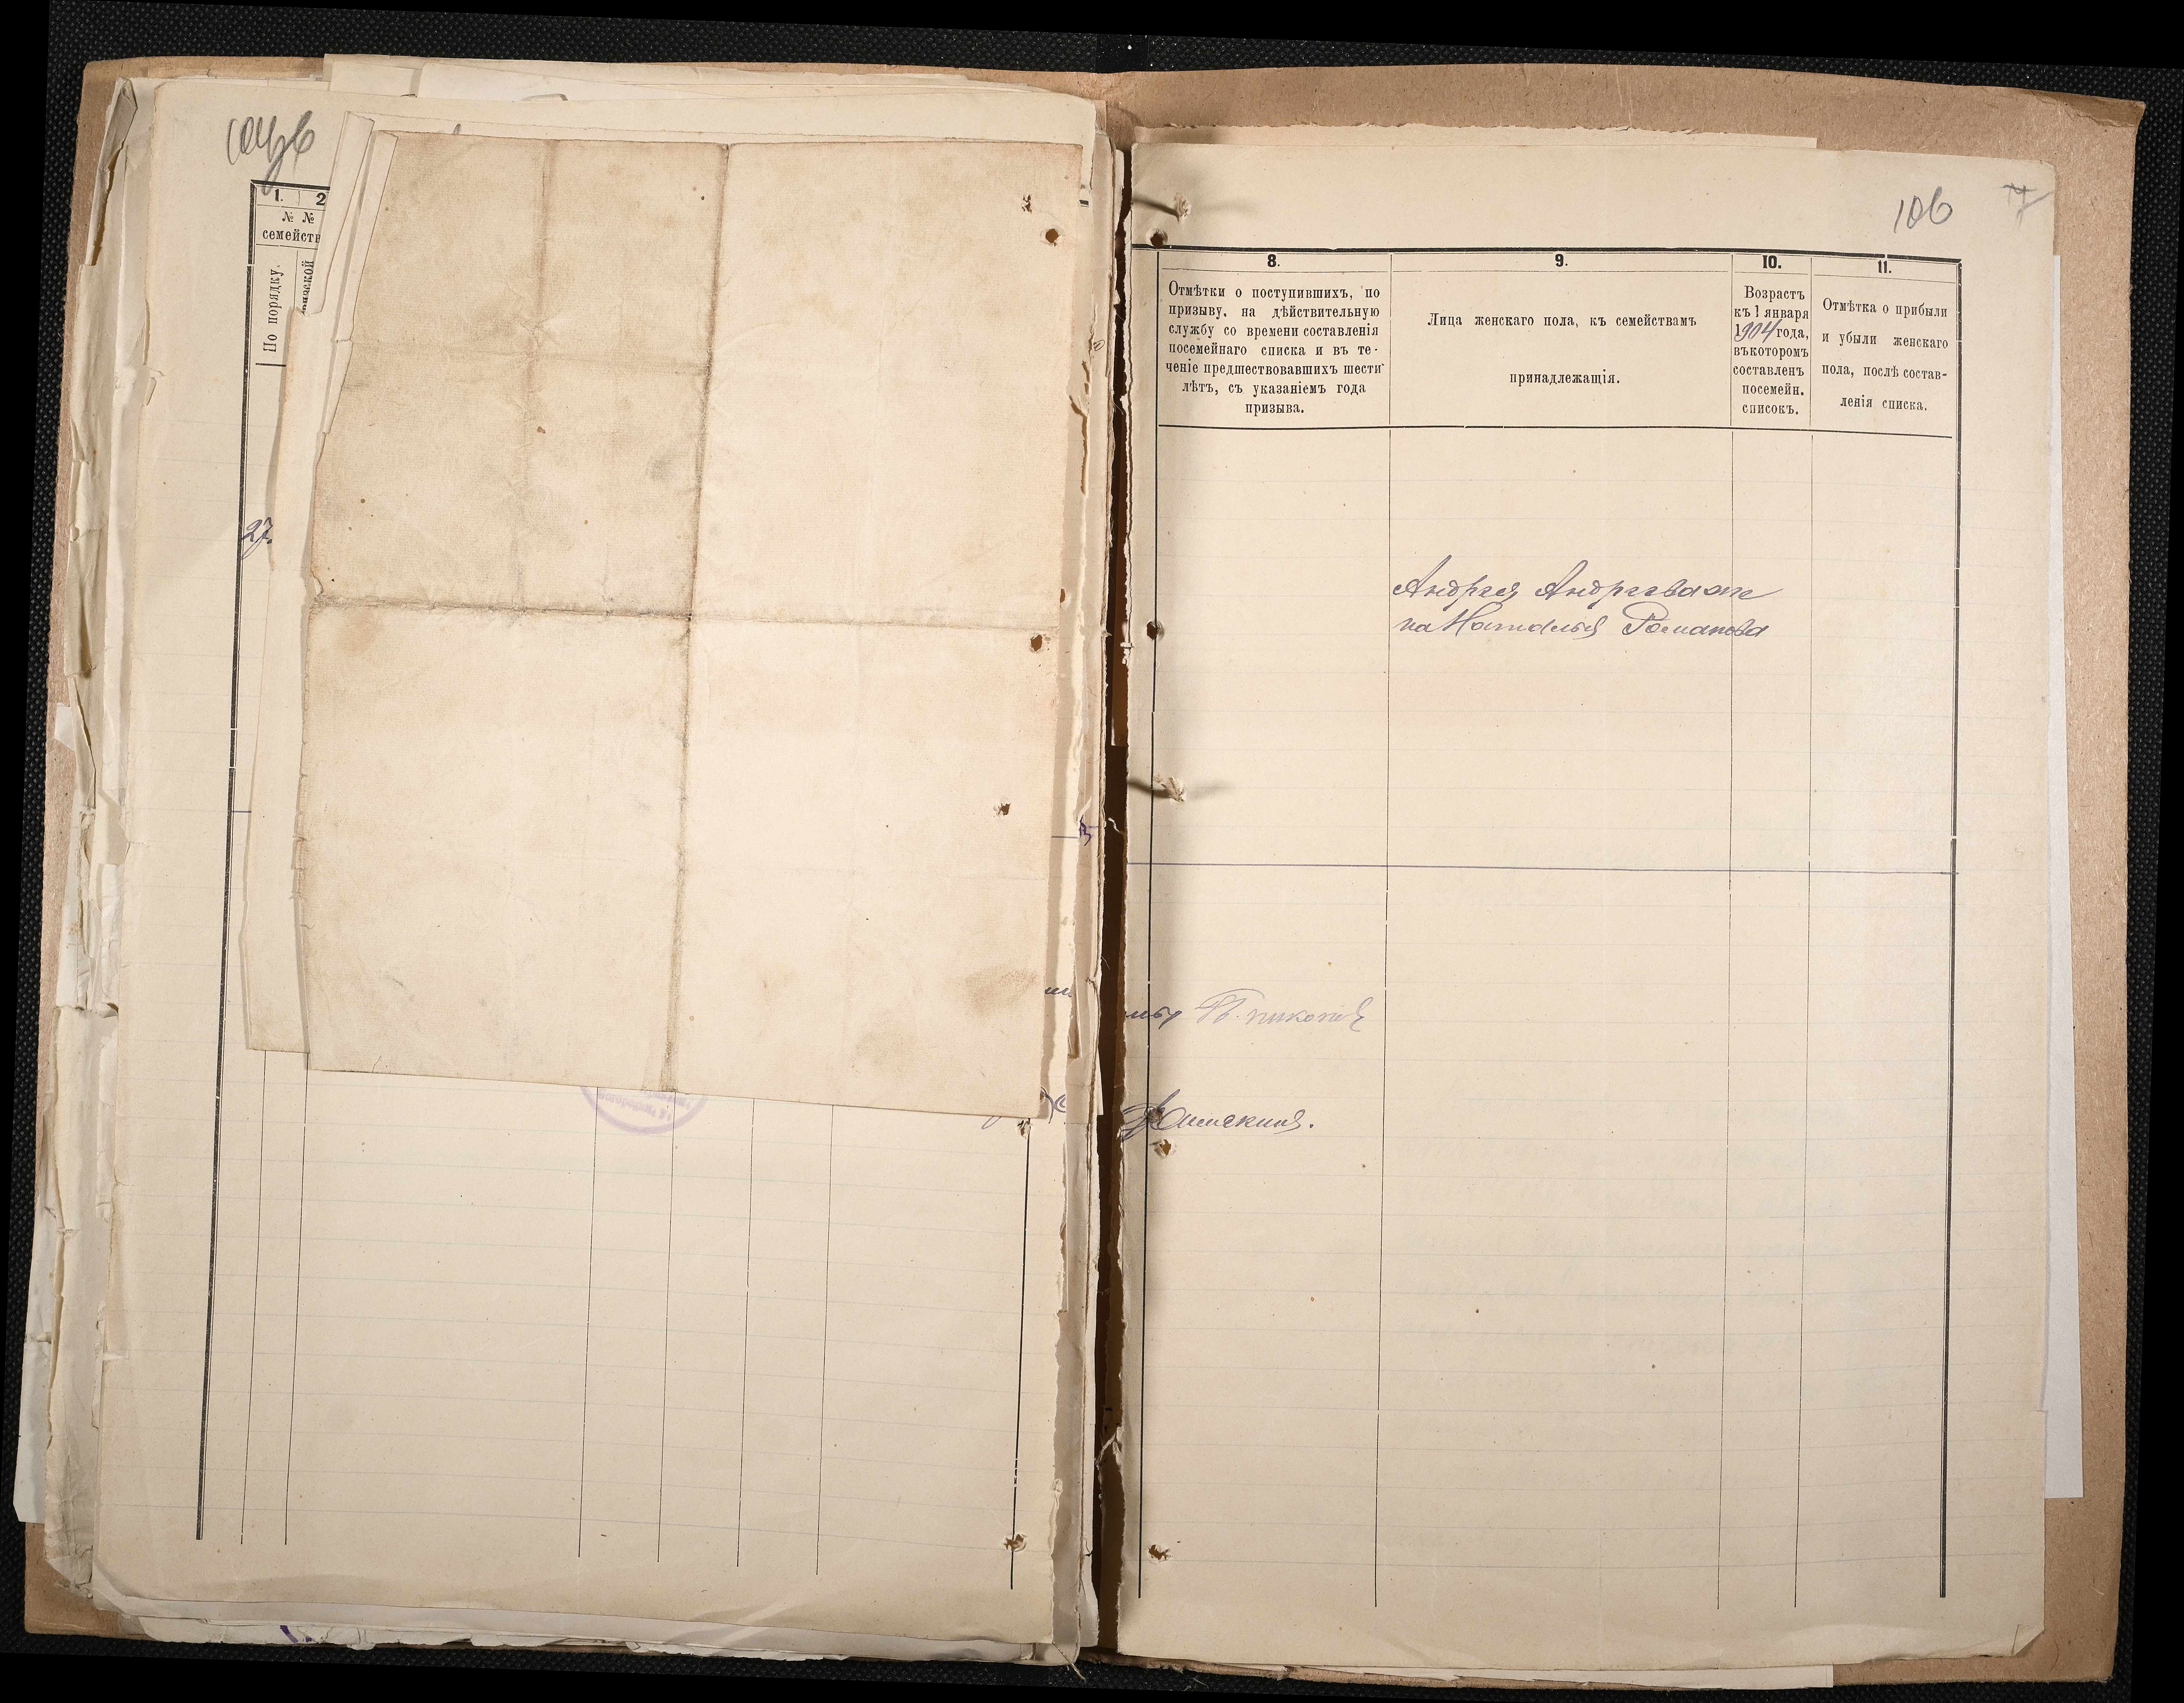 1. 2
№ №
семейств
По порядку.
27.
106
8.
Отмѣтки о поступившихъ, по
призыву, на дѣйствительную
службу со времени составленія
посемейнаго списка и въ те-
ченіе предшествовавшихъ шести
лѣтъ, съ указаніемъ года
призыва.
9.
Лица женскаго пола, къ семействамъ
принадлежащія.
10.
Возрастъ
къ 1 января
1904 года,
въ которомъ
составленъ
посемейн.
списокъ.
11.
Отмѣтка о прибыли
и убыли женскаго
пола, послѣ состав-
ленія списка.
Андрея Андреева же
на Наталья Романова